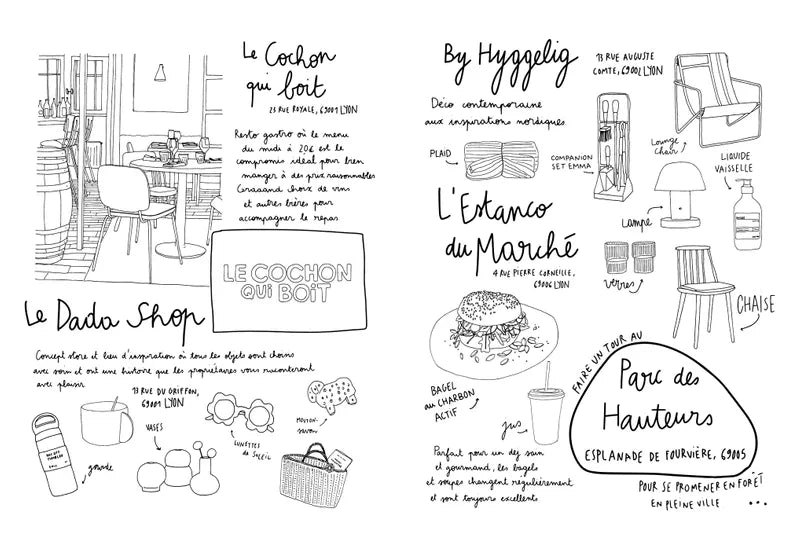 Le Cochon
qui boit
23 RUE ROYALE, 69001 LYON
Resto gastro où le menu
du midi à 20€ est le
compromis idéal pour bien
manger à des prix raisonnables
Graaaand choix de vins
et autres bières pour
accompagner le repas
LE COCHON
QUi BOiT
Le Dada Shop
Concept store et lieu d'inspiration où tous les objets sont choisis
avec soin et ont une histoire que les propriétaires vous raconteront
avec plaisir
13 RUE DU GRIFFON,
69001 LYON
gourde
VASES
LUNETTES
de SOLEIL
MOUTON-
savon
By Hyggelig
13 RUE AUGUSTE
COMTE, 69002 LYON
Déco contemporaine
aux inspirations nordiques
PLAID
COMPANION
SET EMMA
Lounge
chair
LIQUIDE
VAISSELLE
Lampe
verres
CHAISE
L'Estanco
du Marché
4 RUE PIERRE CORNEILLE,
69006 LYON
BAGEL
au CHARBON
ACTIF
jus
Parfait pour un dej sain
et gourmand, les bagels
et soupes changent régulièrement
et sont toujours excellents
FAIRE UN TOUR AU
Parc des
Hauteurs
ESPLANADE DE FOURVIÈRE, 69005
POUR SE PROMENER EN FORÊT
EN PLEINE VILLE ...